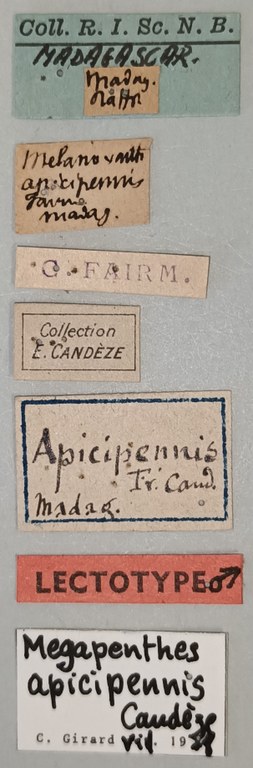 Coll. R. I. Sc. N. B.
MADAGASCAR.
Madag.
apicipennis
Fairm
madag.
C. FAIRM.
Collection
E. CANDÈZE
Apicipennis
Fr. Cand.
Madag.
LECTOTYPE ♂
Megapenthes
apicipennis
Candèze
C. Girard vid. 19